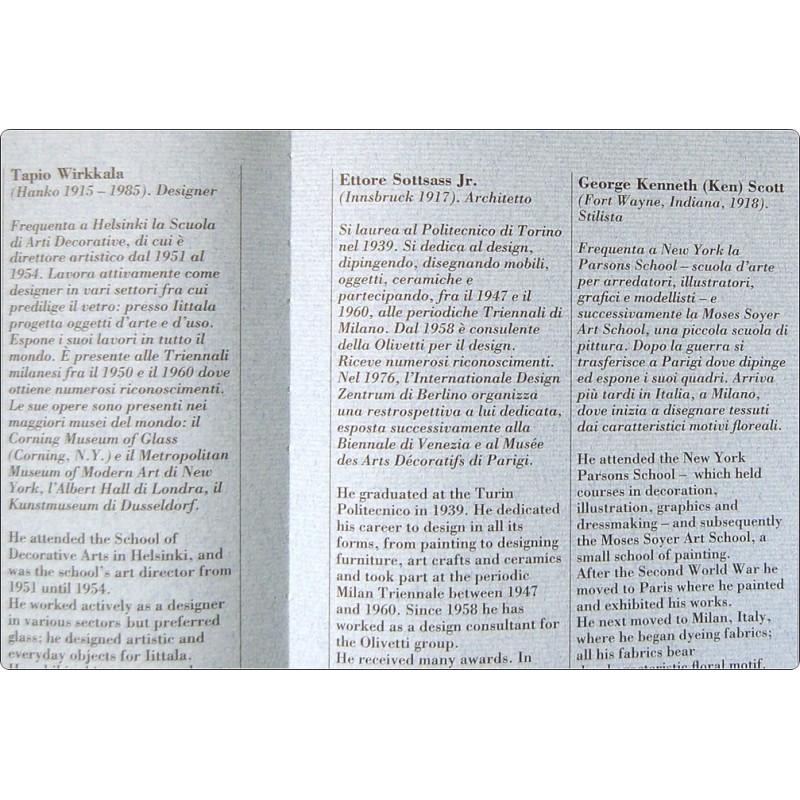 Tapio Wirkkala
(Hanko 1915 – 1985). Designer
Frequenta a Helsinki la Scuola
di Arti Decorative, di cui è
direttore artistico dal 1951 al
1954. Lavora attivamente come
designer in vari settori fra cui
predilige il vetro: presso Iittala
progetta oggetti d'arte e d'uso.
Espone i suoi lavori in tutto il
mondo. È presente alle Triennali
milanesi fra il 1950 e il 1960 dove
ottiene numerosi riconoscimenti.
Le sue opere sono presenti nei
maggiori musei del mondo: il
Corning Museum of Glass
(Corning, N.Y.) e il Metropolitan
Museum of Modern Art di New
York, l'Albert Hall di Londra, il
Kunstmuseum di Dusseldorf.
He attended the School of
Decorative Arts in Helsinki, and
was the school's art director from
1951 until 1954.
He worked actively as a designer
in various sectors but preferred
glass: he designed artistic and
everyday objects for Iittala.
Ettore Sottsass Jr.
(Innsbruck 1917). Architetto
Si laurea al Politecnico di Torino
nel 1939. Si dedica al design,
dipingendo, disegnando mobili,
oggetti, ceramiche e
partecipando, fra il 1947 e il
1960, alle periodiche Triennali di
Milano. Dal 1958 è consulente
della Olivetti per il design.
Riceve numerosi riconoscimenti.
Nel 1976, l'Internationale Design
Zentrum di Berlino organizza
una restrospettiva a lui dedicata,
esposta successivamente alla
Biennale di Venezia e al Musée
des Arts Décoratifs di Parigi.
He graduated at the Turin
Politecnico in 1939. He dedicated
his career to design in all its
forms, from painting to designing
furniture, art crafts and ceramics
and took part at the periodic
Milan Triennale between 1947
and 1960. Since 1958 he has
worked as a design consultant for
the Olivetti group.
He received many awards. In
George Kenneth (Ken) Scott
(Fort Wayne, Indiana, 1918).
Stilista
Frequenta a New York la
Parsons School – scuola d'arte
per arredatori, illustratori,
grafici e modellisti – e
successivamente la Moses Soyer
Art School, una piccola scuola di
pittura. Dopo la guerra si
trasferisce a Parigi dove dipinge
ed espone i suoi quadri. Arriva
più tardi in Italia, a Milano,
dove inizia a disegnare tessuti
dai caratteristici motivi floreali.
He attended the New York
Parsons School – which held
courses in decoration,
illustration, graphics and
dressmaking – and subsequently
the Moses Soyer Art School, a
small school of painting.
After the Second World War he
moved to Paris where he painted
and exhibited his works.
He next moved to Milan, Italy,
where he began dyeing fabrics;
all his fabrics bear
floral motif.